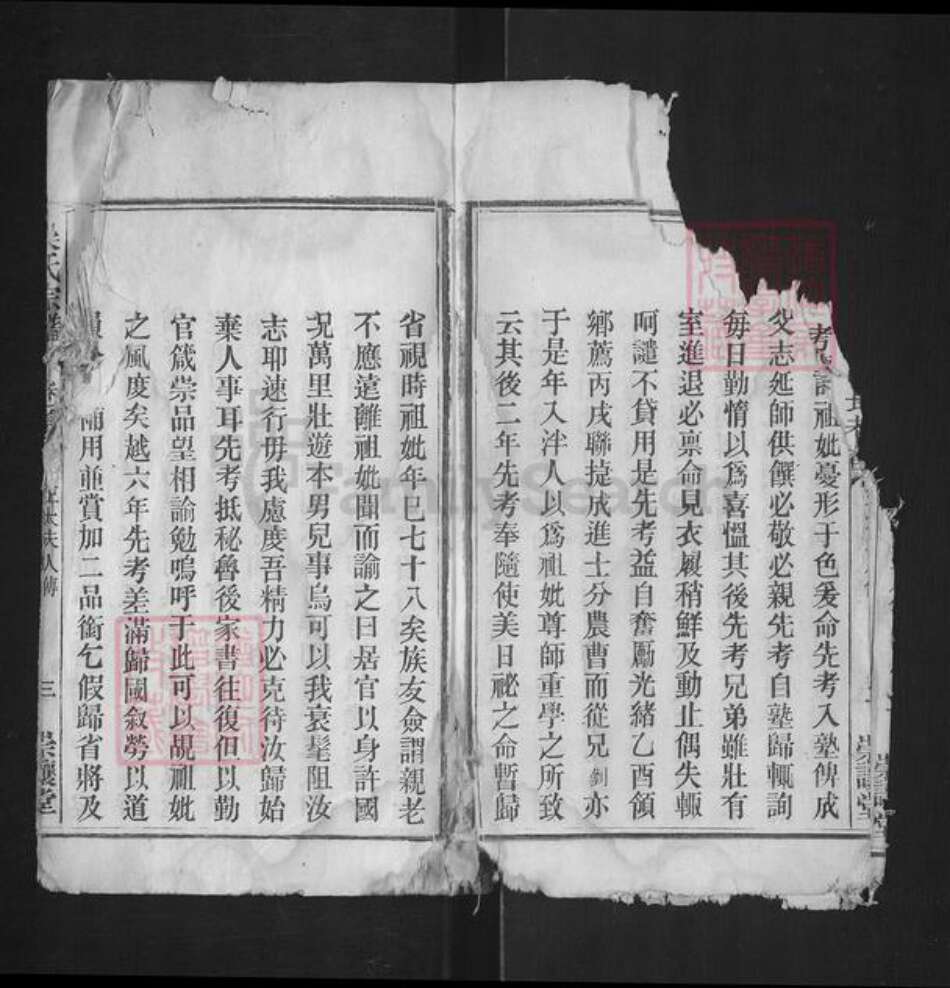 考
祖妣憂形于色爰命先考入塾俾成
父志延師供饌必敬必親先考自塾歸輒詢
每日勤惰以爲喜慍其後先考兄弟雖壯有
室進退必禀命見衣履稍鮮及動止偶失輒
呵譴不貸用是先考益自奮勵光緒乙酉領
鄉薦丙戌聯捷成進士分農曹而從兄釗亦
于是年入泮人以爲祖妣尊師重學之所致
云其後二年先考奉隨使美日祕之命暫歸
省視時祖妣年已七十八矣族友僉謂親老
不應遠離祖妣聞而諭之曰居官以身許國
况萬里壯遊本男兒事烏可以我衰髦阻汝
志耶速行毋我慮度吾精力必克待汝歸始
棄人事耳先考抵秘魯後家書往復但以勤
官箴崇品望相諭勉嗚呼于此可以覘祖妣
之風度矣越六年先考差滿歸國敘勞以道
補用並賞加二品銜乞假歸省將及
氏宗譜
太夫人傳
三
堂
FamilySearch